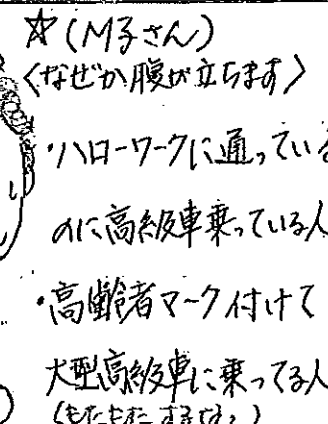 ☆(M子さん)
〈なぜか腹が立ちます〉
・ハローワークに通っている
のに高級車乗っている人
・高齢者マーク付けて
大型高級車に乗ってる人
(もたもたするな。)